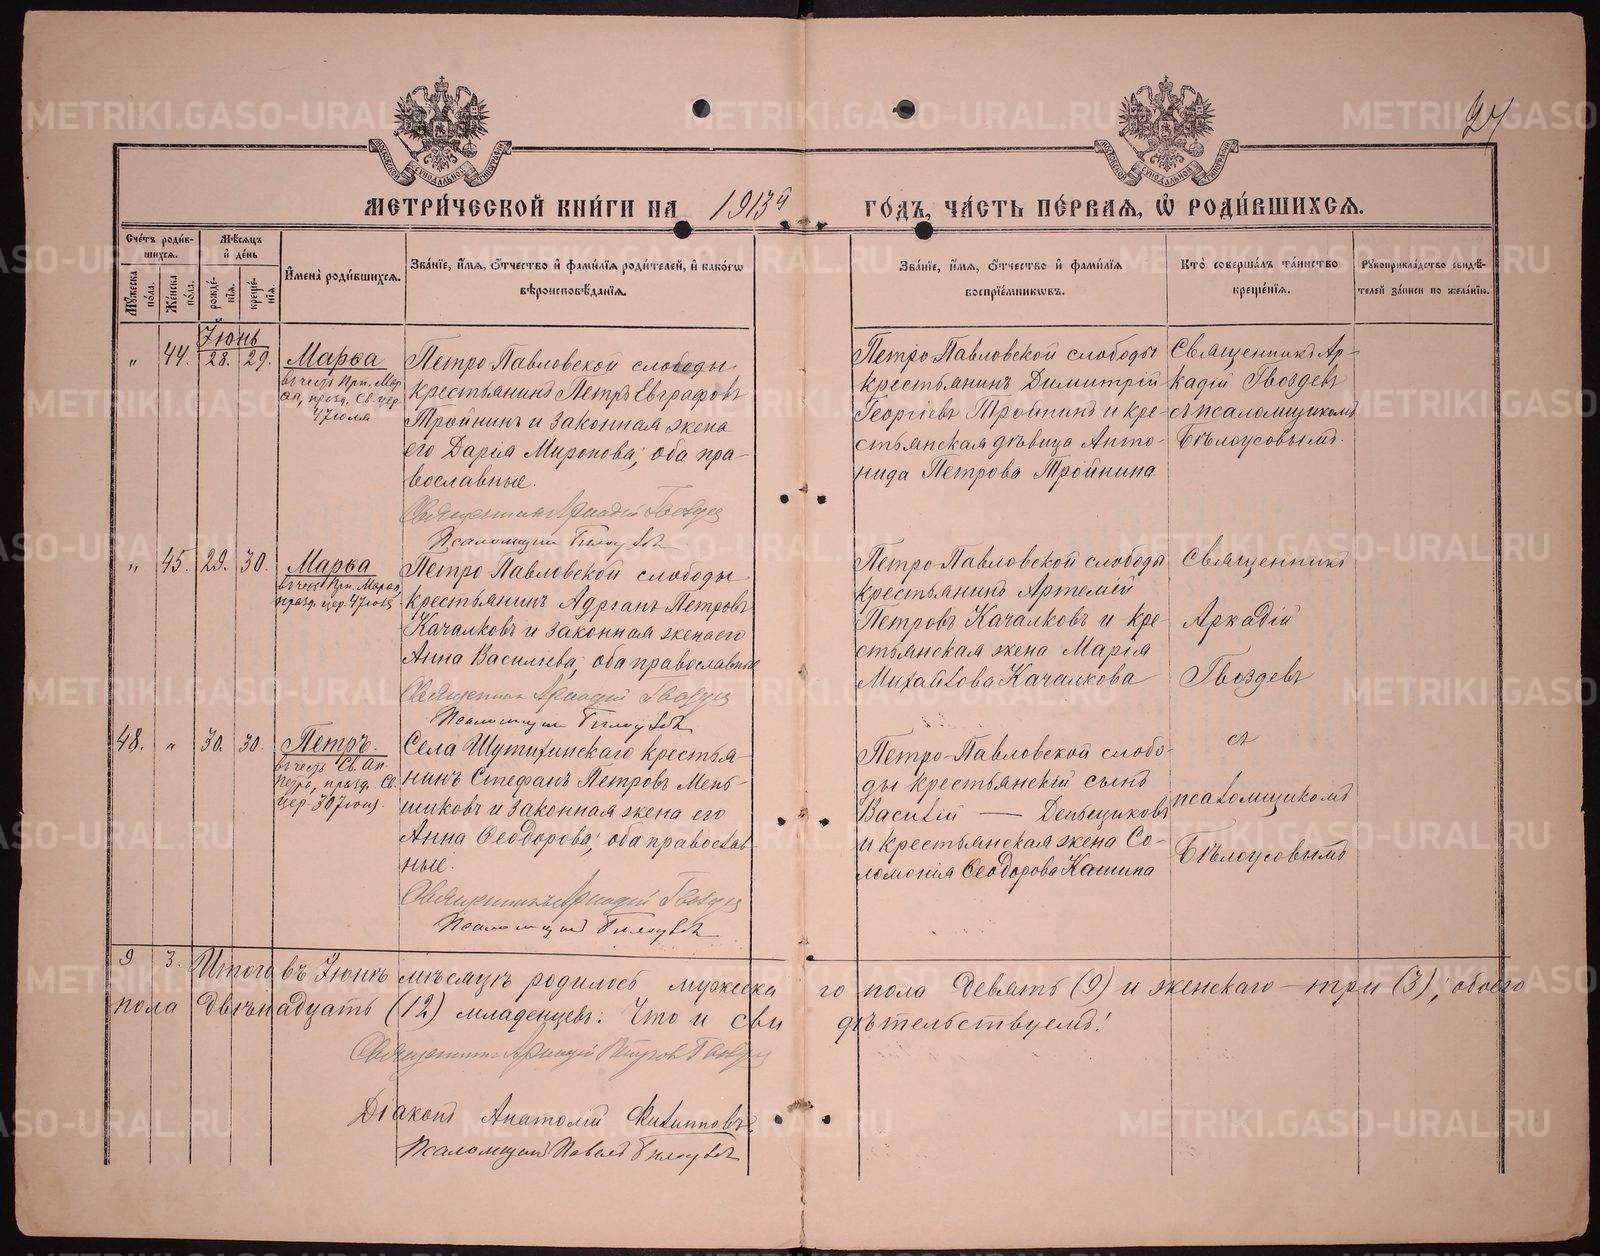 24
МЕТРИ́ЧЕСКОЙ КНИ́ГИ НА 1913й ГО́ДЪ, ЧА́СТЬ ПЕ́РВАЯ, Ѡ҆ РОДИ́ВШИХСЯ.
Сче́тъ роди́в-
шихся.
Мѣ́сяцъ
и҆ де́нь
Мꙋ́жеска
по́ла.
Же́нска
по́ла.
рожде́-
нїя.
креще́-
нїя.
И҆мена̀ роди́вшихся.
Зва́нїе, и҆́мя, ѻ҆́тчество и҆ фами́лїя роди́телей, и҆ како́гѡ
вѣроисповѣ́данїя.
Зва́нїе, и҆́мя, ѻ҆́тчество и҆ фами́лїя
воспрїе́мникѡвъ.
Кто̀ соверша́лъ та́инство
креще́нїя.
Рꙋкоприкла́дство свидѣ́-
телей за́писи по жела́нїю.
Іюнь
„ 44. 28. 29.
Марѳа
въ честь Прп. Мар-
ѳы, празд. Св. цер.
4 Іюля
Петро Павловской слободы
крестьянинъ Петръ Евграфовъ
Тройнинъ и законная жена
его Дарія Миронова, оба пра-
вославные.
Священникъ Аркадій Гвоздевъ
Псаломщикъ Бѣлоусовъ
Петро Павловской слободы
крестьянинъ Димитрій
Георгіевъ Тройнинъ и кре-
стьянская дѣвица Анто-
нида Петрова Тройнина
Священникъ Ар-
кадій Гвоздевъ
съ псаломщикомъ
Бѣлоусовымъ.
„ 45. 29. 30.
Марѳа
въ честь Прп. Марѳы,
празд. цер. 4 Іюля
Петро-Павловской слободы
крестьянинъ Адріанъ Петровъ
Качалковъ и законная жена его
Анна Василіева, оба православные
Священник Аркадій Гвоздевъ
Псаломщик Бѣлоусовъ
Петро-Павловской слободы
крестьянинъ Артемій
Петровъ Качалковъ и кре-
стьянская жена Марія
Михайлова Качалкова
Священникъ
Аркадій
Гвоздевъ
съ
псаломщикомъ
Бѣлоусовымъ
48. „ 30. 30.
Петръ.
въ честь Св. Ап.
Петра, празд. Св.
цер. 30 Іюня.
Села Шутихинскаго крестья-
нинъ Стефанъ Петровъ Мень-
шиковъ и законная жена его
Анна Ѳеодорова, оба православ-
ные.
Священникъ Аркадій Гвоздевъ
Псаломщикъ Бѣлоусовъ
Петро-Павловской слобо-
ды крестьянскій сынъ
Василій — Деньщиковъ
и крестьянская жена Со-
ломонія Ѳеодорова Кашина
9 3. Итого въ Іюнѣ мѣсяцѣ родилось мужеска го пола девять (9) и женскаго — три (3), обоего
пола двѣнадцать (12) младенцевъ. Что и сви дѣтельствуемъ!
Священникъ Аркадій Петровъ Гвоздевъ
Діаконъ Анатолій Филипповъ
Псаломщикъ Павелъ Бѣлоусовъ
METRIKI.GASO-URAL.RU